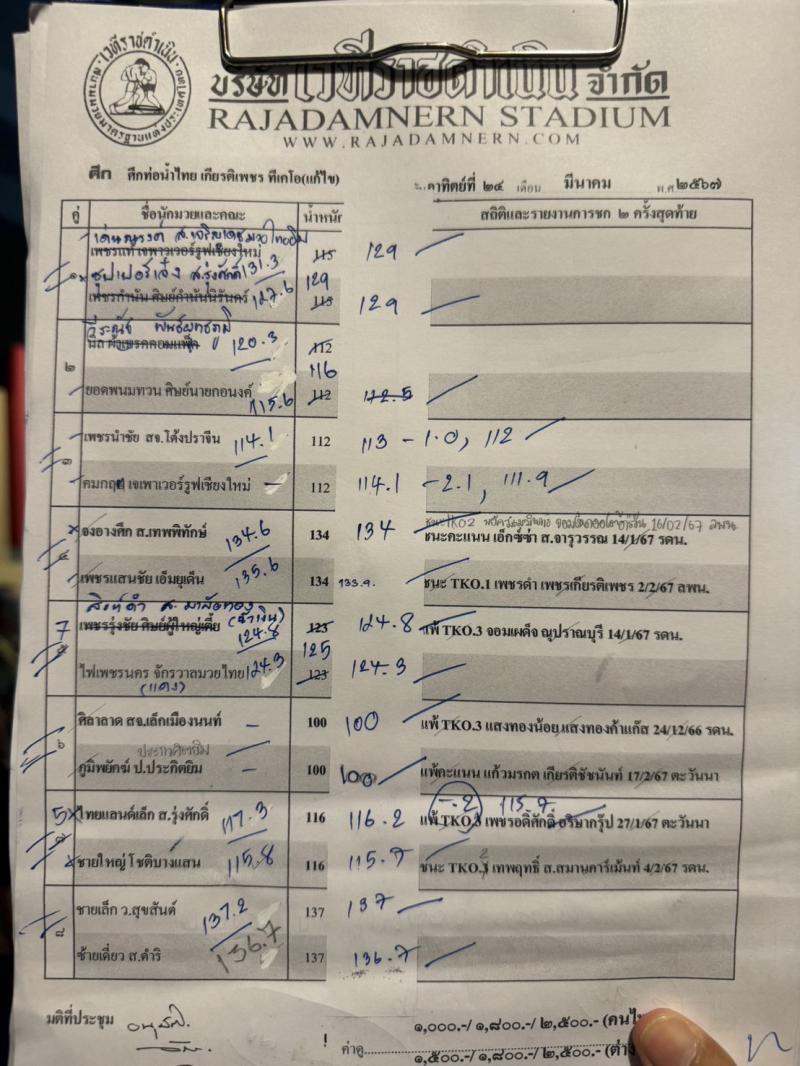 เวทีราชดำเนิน
บริษัท เวทีราชดำเนิน จำกัด
RAJADAMNERN STADIUM
WWW.RAJADAMNERN.COM
ศึก ศึกท่อน้ำไทย เกียรติเพชร ทีเคโอ(แก้ไข)
าทิตย์ที่ ๒๔ เดือน มีนาคม พ.ศ ๒๕๖๗
คู่ ชื่อนักมวยและคณะ น้ำหนัก สถิติและรายงานการชก ๒ ครั้งสุดท้าย
เพชรแท้ เจพาวเวอร์รูฟเชียงใหม่ 115 129
ซุปเปอร์เจ๋ง ส.รุ่งศักดิ์ 131.3 129
๑ เพชรกำนัน ศิษย์กำนันนิรันดร์ 127.6 115 129
120.3 112
๒ 116
ยอดพนมทวน ศิษย์นายกอนงค์ 115.6 112 112.5
เพชรนำชัย สจ.โต้งปราจีน 114.1 112 113 - 1.0, 112
๓
คมกฤต เจเพาเวอร์รูฟเชียงใหม่ - 112 114.1 - 2.1, 111.9
ชนะTKO2 16/02/67 ลพน.
จงอางศึก ส.เทพพิทักษ์ 134.6 134 134 ชนะคะแนน เอ็กซ์ซ่า ส.จารุวรรณ 14/1/67 รดน.
๔
เพชรแสนชัย เอ็มยูเด็น 135.6 134 133.9. ชนะ TKO.1 เพชรดำ เพชรเกียรติเพชร 2/2/67 ลพน.
สิงห์ดำ (น้ำเงิน)
7 เพชรรุ่งชัย ศิษย์ผู้ใหญ่เตี้ย 124.8 123 124.8 แพ้ TKO.3 จอมเผด็จ ณุปราณบุรี 14/1/67 รดน.
๕ 125
ไฟเพชรนคร จักรวาลมวยไทย 124.3 123 124.3
(แดง)
ศิลาลาด สจ.เล็กเมืองนนท์ - 100 100 แพ้ TKO.3 แสงทองน้อย แสงทองค้าแก๊ส 24/12/66 รดน.
๖ ประกาศิตยิม
ภูมิพยักฆ์ ป.ประกิตยิม - 100 100 แพ้คะแนน แก้วมรกต เกียรติชัชนันท์ 17/2/67 ตะวันนา
(-.2) 115.7
5 ไทยแลนด์เล็ก ส.รุ่งศักดิ์ 117.3 116 116.2 แพ้ TKO.3 เพชรอดิ์ศักดิ์ อริษากรุ๊ป 27/1/67 ตะวันนา
๗
ชายใหญ่ โชติบางแสน 115.8 116 115.7 ชนะ TKO.2 เทพฤทธิ์ ส.สมานการ์เม้นท์ 4/2/67 รดน.
ชายเล็ก ว.สุขสันต์ 137.2 137 137
๘
ซ้ายเดี่ยว ส.ดำริ 136.7 137 136.7
มติที่ประชุม
๑,๐๐๐.-/ ๑,๘๐๐.-/ ๒,๕๐๐.- (คนไ
ค่าดู ๑,๕๐๐.-/ ๑,๘๐๐.-/ ๒,๕๐๐.- (ต่าง